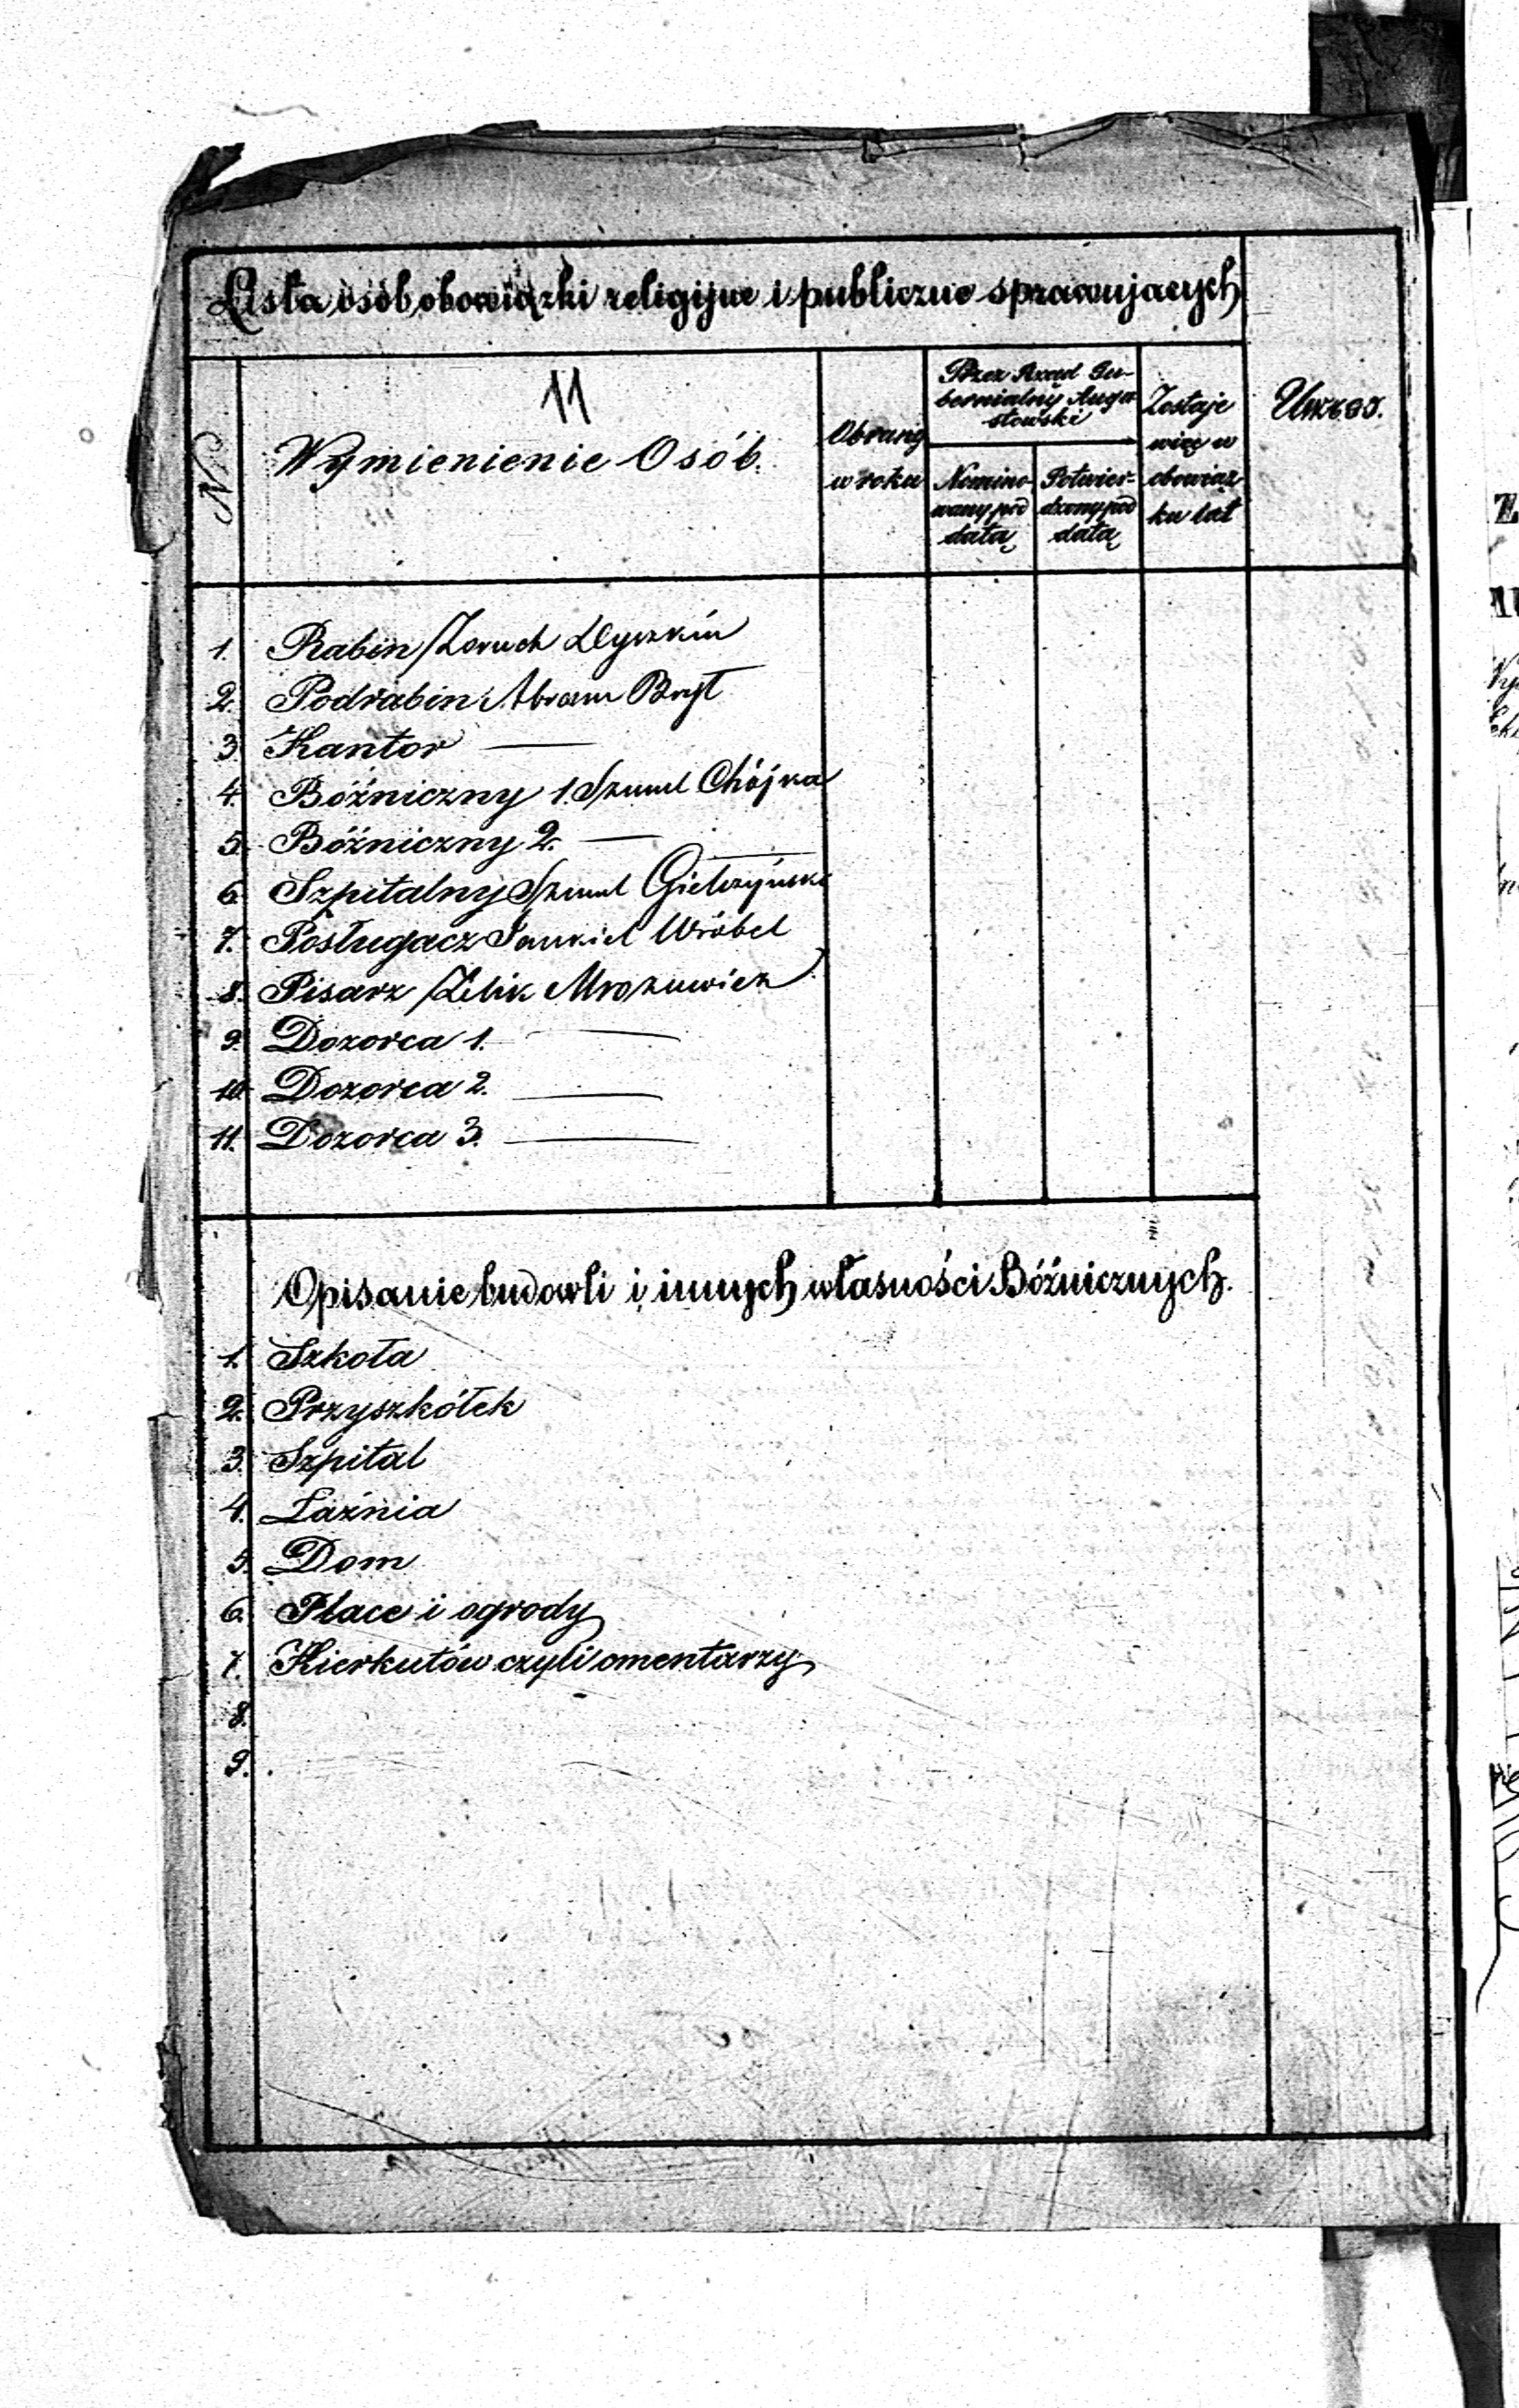 Lista osób obowiązki religijne i publiczne sprawujących
11
No
Wymienienie Osób.
Obrany
w roku
Przez Rząd Gu-
bernialny Augu-
stowski
Nomino-
wany pod
datą
Potwier-
dzony pod
datą
Zostaje
więc w
obowiąz-
ku lat
1. Rabin Zoruch
2. Podrabin Abram Bryt
3. Kantor —
4. Bóźniczny 1. Szmul Chójka
5. Bóźniczny 2. —
6. Szpitalny Szmul Giełczyński
7. Posługacz Jankiel Wróbel
8. Pisarz Zelik Mrozowicz
9. Dozorca 1. —
10. Dozorca 2. —
11. Dozorca 3. —
Opisanie budowli i innych własności Bóźnicznych.
1. Szkoła
2. Przyszkółek
3. Szpital
4. Łaźnia
5. Dom
6. Place i ogrody
7. Kierkutów czyli omentarzy
8.
9.